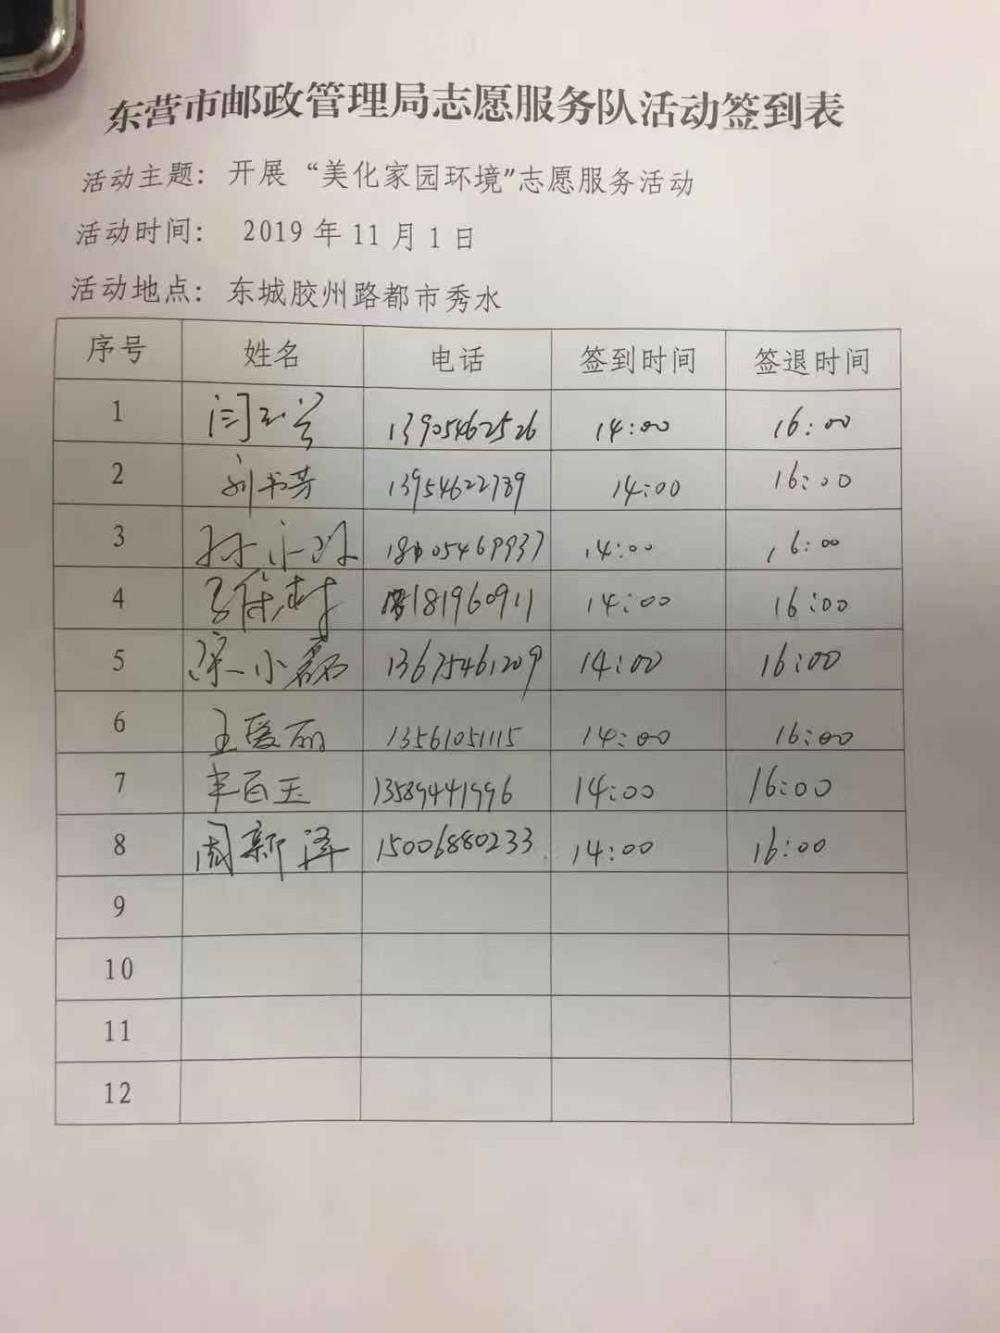 东营市邮政管理局志愿服务队活动签到表
活动主题：开展“美化家园环境”志愿服务活动
活动时间： 2019年11月1日
活动地点：东城胶州路都市秀水
序号 姓名 电话 签到时间 签退时间
1 13905462526 14:00 16:00
2 刘书芳 13954622789 14:00 16:00
3 14:00 16:00
4 14:00 16:00
5 徐小磊 13675461209 14:00 16:00
6 王爱丽 13561051115 14:00 16:00
7 丰百玉 13589441996 14:00 16:00
8 周新泽 15006880233 14:00 16:00
9
10
11
12